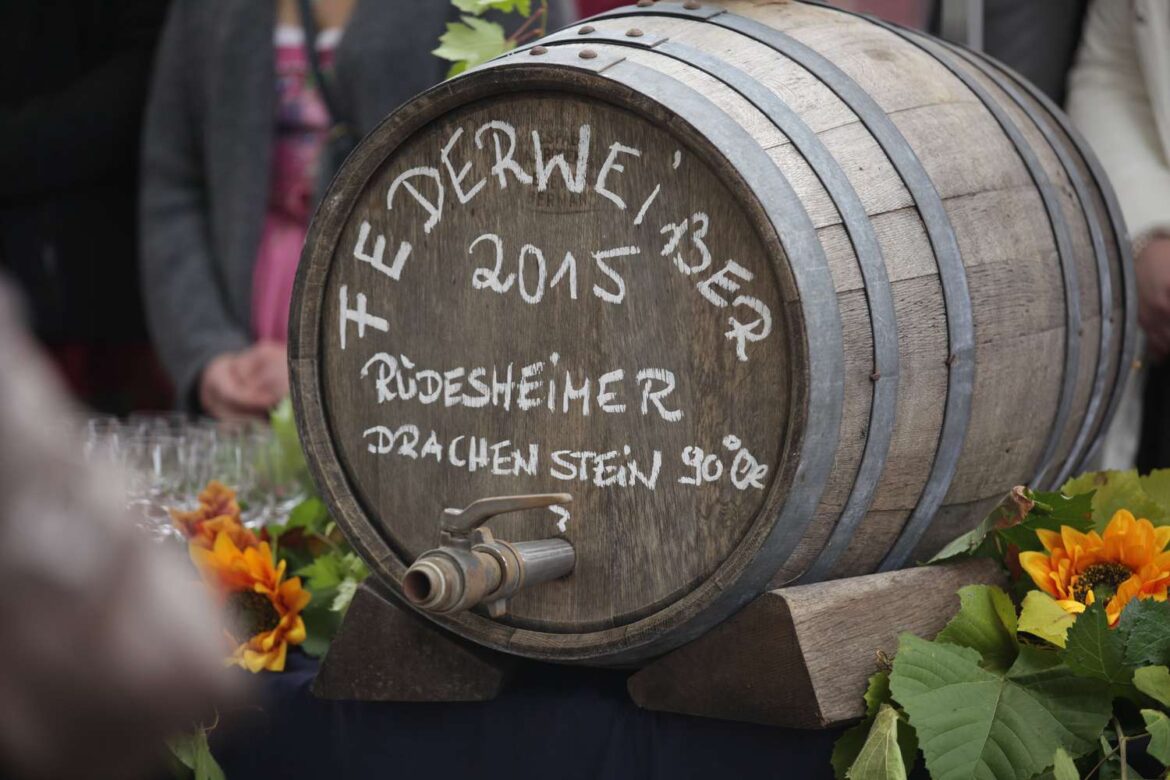 FEDERWEIßER
2015
RÜDESHEIMER
DRACHENSTEIN 90°Oe